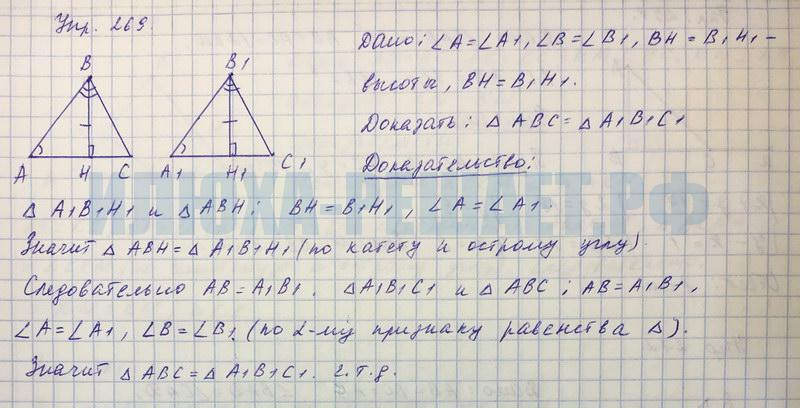 Упр. 269.
Дано: ∠A=∠A1, ∠B=∠B1, BH = B1H1 –
высоты, BH=B1H1.
Доказать: △ABC=△A1B1C1
Доказательство:
B
B1
A H C
A1 H1 C1
ИЛЮХА-РЕШАЕТ.РФ
△A1B1H1 и △ABH: BH=B1H1, ∠A=∠A1.
Значит △ABH=△A1B1H1 (по катету и острому углу).
Следовательно AB=A1B1. △A1B1C1 и △ABC: AB=A1B1,
∠A=∠A1, ∠B=∠B1. (по 2-му признаку равенства △).
Значит △ABC=△A1B1C1. ч.т.д.